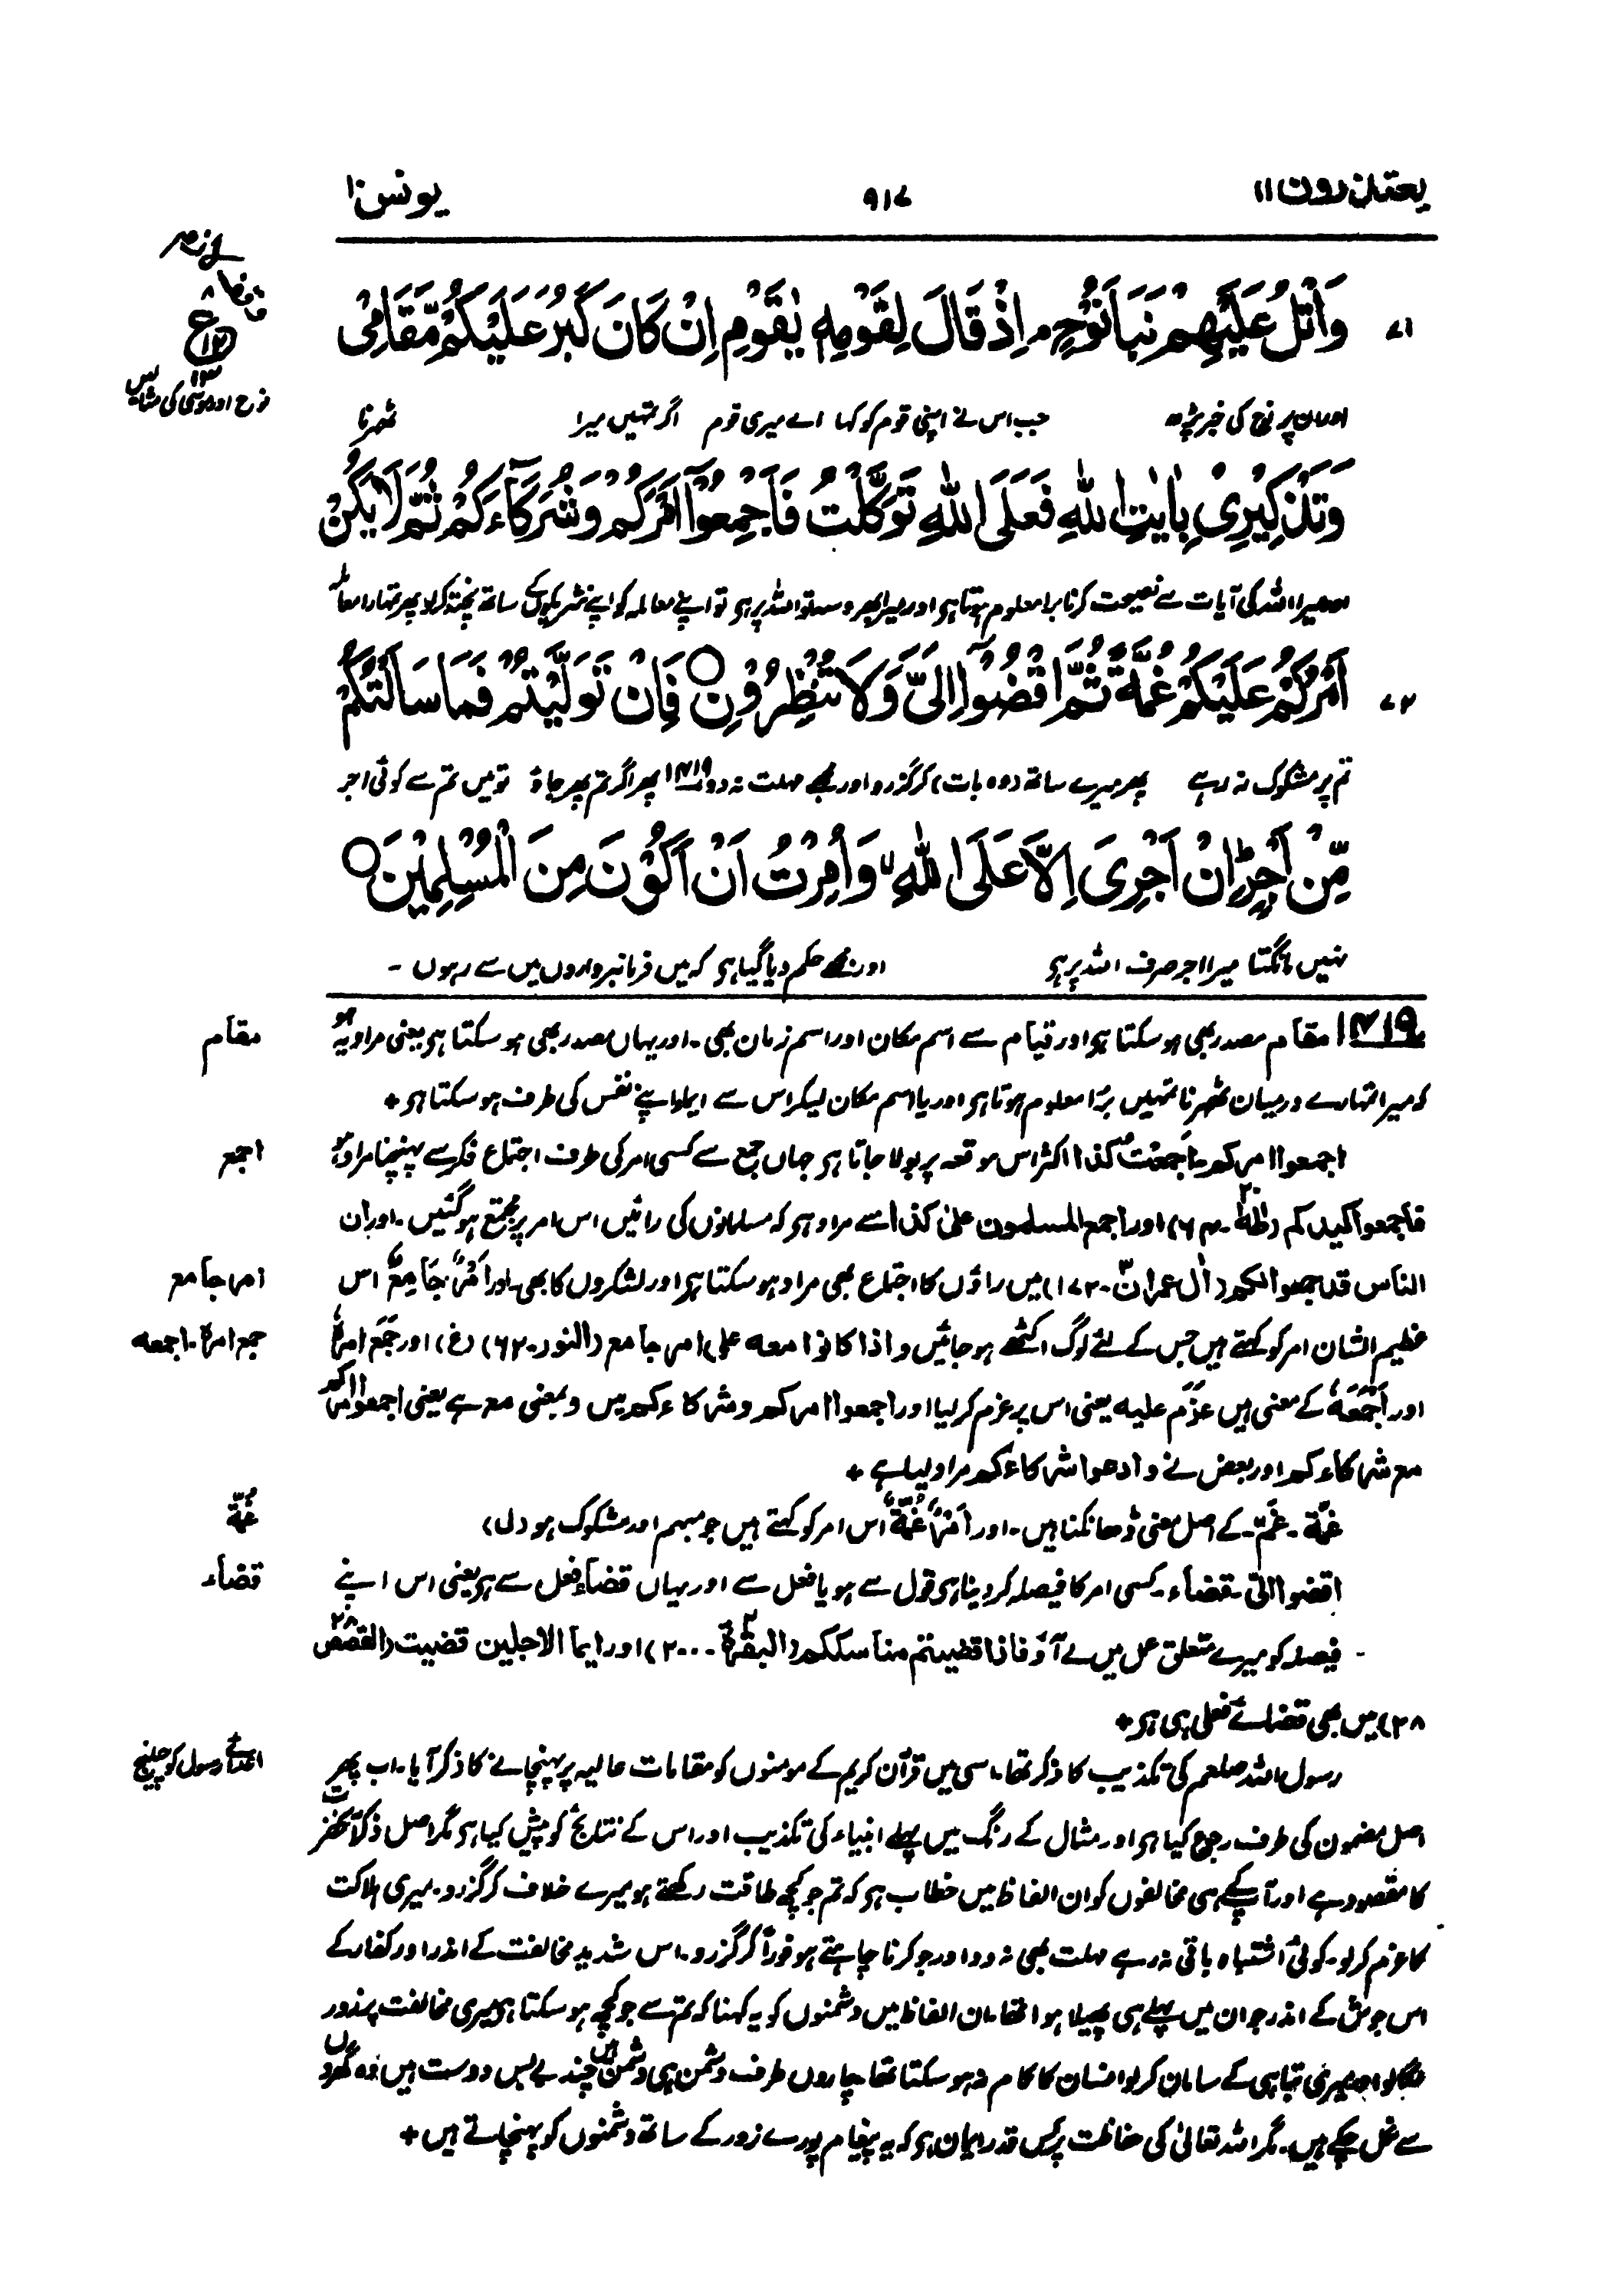 یعتذرون ۱۱
۹۱۷
یونس ۱۰
۷۱
وَاتْلُ عَلَيْهِمْ نَبَاَ نُوْحٍ ۘ اِذْ قَالَ لِقَوْمِهٖ يٰقَوْمِ اِنْ كَانَ كَبُرَ عَلَيْكُمْ مَّقَامِيْ
نوح اور موسٰی کی مثالیں
اور ان پر نوح کی خبر پڑھ جب اس نے اپنی قوم کو کہا اے میری قوم اگر تمہیں میرا ٹھہرنا
وَتَذْكِيْرِيْ بِاٰيٰتِ اللّٰهِ فَعَلَى اللّٰهِ تَوَكَّلْتُ فَاَجْمِعُوْٓا اَمْرَكُمْ وَشُرَكَآءَكُمْ ثُمَّ لَا يَكُنْ
اور میرا اللہ کی آیات سے نصیحت کرنا برا معلوم ہوتا ہو اور میرا بھروسہ تو اللہ پر ہو تو اپنے معاملہ کو اپنے شریکوں کے ساتھ پختہ کرلو پھر تمہارا معاملہ
۷۲
اَمْرُكُمْ عَلَيْكُمْ غُمَّةً ثُمَّ اقْضُوْٓا اِلَيَّ وَلَا تُنْظِرُوْنِ ○ فَاِنْ تَوَلَّيْتُمْ فَمَا سَاَلْتُكُمْ
تم پر مشکوک نہ رہے پھر میرے ساتھ (وہ بات) کر گزرو اور مجھے مہلت نہ دو ۱۴۱۹ پھر اگر تم پھر جاؤ تو میں تم سے کوئی اجر
مِّنْ اَجْرٍ ؕ اِنْ اَجْرِيَ اِلَّا عَلَى اللّٰهِ ۙ وَاُمِرْتُ اَنْ اَكُوْنَ مِنَ الْمُسْلِمِيْنَ ○
نہیں مانگتا میرا اجر صرف اللہ پر ہو اور مجھے حکم دیا گیا ہو کہ میں فرمانبرداروں میں سے رہوں ۔
مقام
۱۴۱۹ مقام مصدر بھی ہو سکتا ہو اور قیام سے اسم مکان اور اسم زمان بھی ۔ اور یہاں مصدر بھی ہو سکتا ہو یعنی مراد یہ ہو
کہ میرا تمہارے درمیان ٹھہرنا تمہیں برا معلوم ہوتا ہو اور یا اسم مکان لیکر اس سے ایما اپنے نفس کی طرف ہو سکتا ہو +
اجمع
اجمعوا امرکم ۔ اَجْمَعْتُ کذا اکثر اس موقعہ پر بولا جاتا ہو جہاں جمع سے کسی امر کی طرف اجتماع فکر سے پہنچنا مراد ہو
فاجمعوا کیدکم (طٰہٰ ۔ ۶۴) اور اجمع المسلمون علیٰ کذا سے مراد ہو کہ مسلمانوں کی رائیں اس امر پر مجتمع ہو گئیں ۔ اور ان
امر جامع
الناس قد جمعوا لکم (اٰل عمران ۔ ۱۷۲) میں راؤں کا اجتماع بھی مراد ہو سکتا ہو اور لشکروں کا بھی ۔ اور اَمْرٌ جَامِعٌ اس
جمع امرہٗ ۔ اجمعہ
عظیم الشان امر کو کہتے ہیں جس کے لئے لوگ اکٹھے ہو جائیں واذا کانوا معہ علی امر جامع (النور ۔ ۶۲) (غ) اور جَمَعَ امرہٗ
اور اَجْمَعَہٗ کے معنی ہیں عزم علیہ یعنی اس پر عزم کر لیا اور اجمعوا امرکم وشرکاءکم میں و بمعنی مع ہے یعنی اجمعوا امرکم
مع شرکاءکم اور بعض نے وادعوا شرکاءکم مراد لیا ہے +
غُمَّۃ
غمّۃ ۔ غمّ ۔ کے اصل معنی ڈھانکنا ہیں ۔ اور اَمْرٌ غُمَّۃٌ اس امر کو کہتے ہیں جو مبہم اور مشکوک ہو (ل)
قضاء
اقضوا الیّ ۔ قضاء ۔ کسی امر کا فیصلہ کر دینا ہو قول سے ہو یا فعل سے اور یہاں قضاء فعل سے ہو یعنی اس اپنے
فیصلہ کو میرے متعلق عمل میں لے آؤ فاذا قضیتم مناسککم (البقرۃ ۔ ۲۰۰) اور ایما الاجلین قضیت (القصص
۲۸) میں بھی قضائے فعلی ہی ہو +
اعدائے رسول کو چیلنج
رسول اللہ صلعم کی تکذیب کا ذکر تھا ۔ اسی میں قرآن کریم کے مومنوں کو مقامات عالیہ پر پہنچانے کا ذکر آیا ۔ اب پھر
اصل مضمون کی طرف رجوع کیا ہو اور مثال کے رنگ میں پہلے انبیاء کی تکذیب اور اس کے نتائج کو پیش کیا ہو مگر اصل ذکر آنحضرت
کا مقصود ہے اور آپ کے ہی مخالفوں کو ان الفاظ میں خطاب ہو کہ تم جو کچھ طاقت رکھتے ہو میرے خلاف کر گزرو ۔ میری ہلاکت
کا عزم کرلو ۔ کوئی اشتباہ باقی نہ رہے مہلت بھی نہ دو اور جو کرنا چاہتے ہو فوراً کر گزرو ۔ اس شدید مخالفت کے اندر اور کفار کے
اس جوش کے اندر جو ان میں پہلے ہی پھیلا ہوا تھا ۔ ان الفاظ میں دشمنوں کو یہ کہنا کہ تم سے جو کچھ ہو سکتا ہو میری مخالفت پر زور
لگا لو اور میری تباہی کے سامان کرلو انسان کا کام نہ ہو سکتا تھا ۔ چاروں طرف دشمن ہی دشمن ہیں چند بے بس دوست ہیں وہ گھروں
سے نکل چکے ہیں ۔ مگر اللہ تعالیٰ کی حفاظت پر کس قدر ایمان ہو کہ یہ پیغام پورے زور کے ساتھ دشمنوں کو پہنچاتے ہیں +